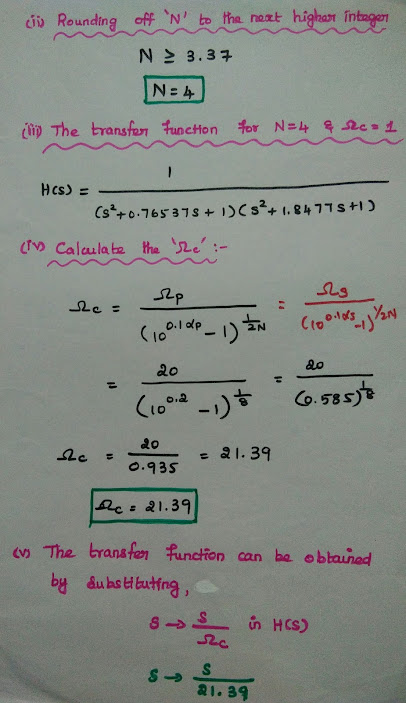 (ii) Rounding off 'N' to the next higher integer
N ≥ 3.37
N = 4
(iii) The transfer function for N=4 & Ωc = 1
H(s) = 1 / (s²+0.76537s + 1)(s²+1.8477s+1)
(iv) Calculate the 'Ωc' :-
Ωc = Ωp / (10^0.1αp − 1)^1/2N = Ωs / (10^0.1αs − 1)^1/2N
= 20 / (10^0.2 − 1)^1/8 = 20 / (0.585)^1/8
Ωc = 20 / 0.935 = 21.39
Ωc = 21.39
(v) The transfer function can be obtained
by substituting,
s → s/Ωc in H(s)
s → s/21.39